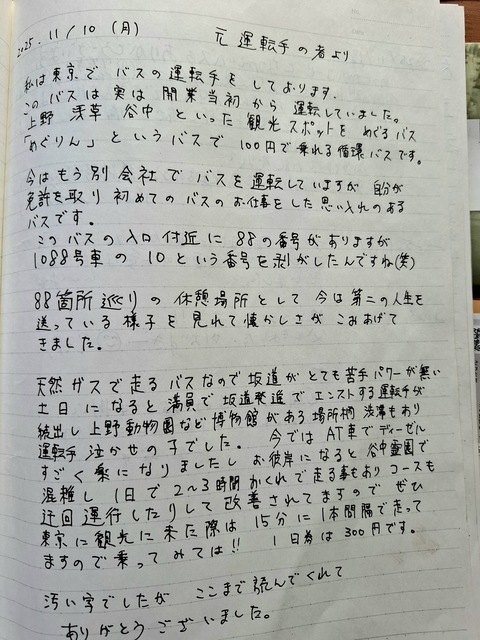 2025.11/10 (月)
元運転手の者より
私は東京でバスの運転手をしております.
このバスは実は開業当初から運転していました。
上野 浅草 谷中 といった観光スポットをめぐるバス
「めぐりん」というバスで 100円で乗れる循環バスです。
今はもう別会社でバスを運転していますが 自分が
免許を取り 初めてのバスのお仕事をした思い入れのある
バスです。
このバスの入口付近に88の番号がありますが
1088号車の10という番号を剥がしたんですね(笑)
88箇所巡りの休憩場所として今は第二の人生を
送っている様子を見れて懐かしさがこみあげて
きました。
天然ガスで走るバスなので坂道がとても苦手パワーが無い
土日になると満員で坂道発進でエンストする運転手が
続出し上野動物園など博物館がある場所柄 渋滞もあり
運転手泣かせの子でした。 今ではAT車でディーゼル
すごく楽になりましたし お彼岸になると谷中霊園で
混雑し1日で2~3時間おくれで走る事もあり コースも
迂回運行したりして改善されてますので ぜひ
東京に観光に来た際は 15分に1本間隔で走って
ますので乗ってみては!! 1日券は300円です。
汚い字でしたが ここまで読んでくれて
ありがとうございました。